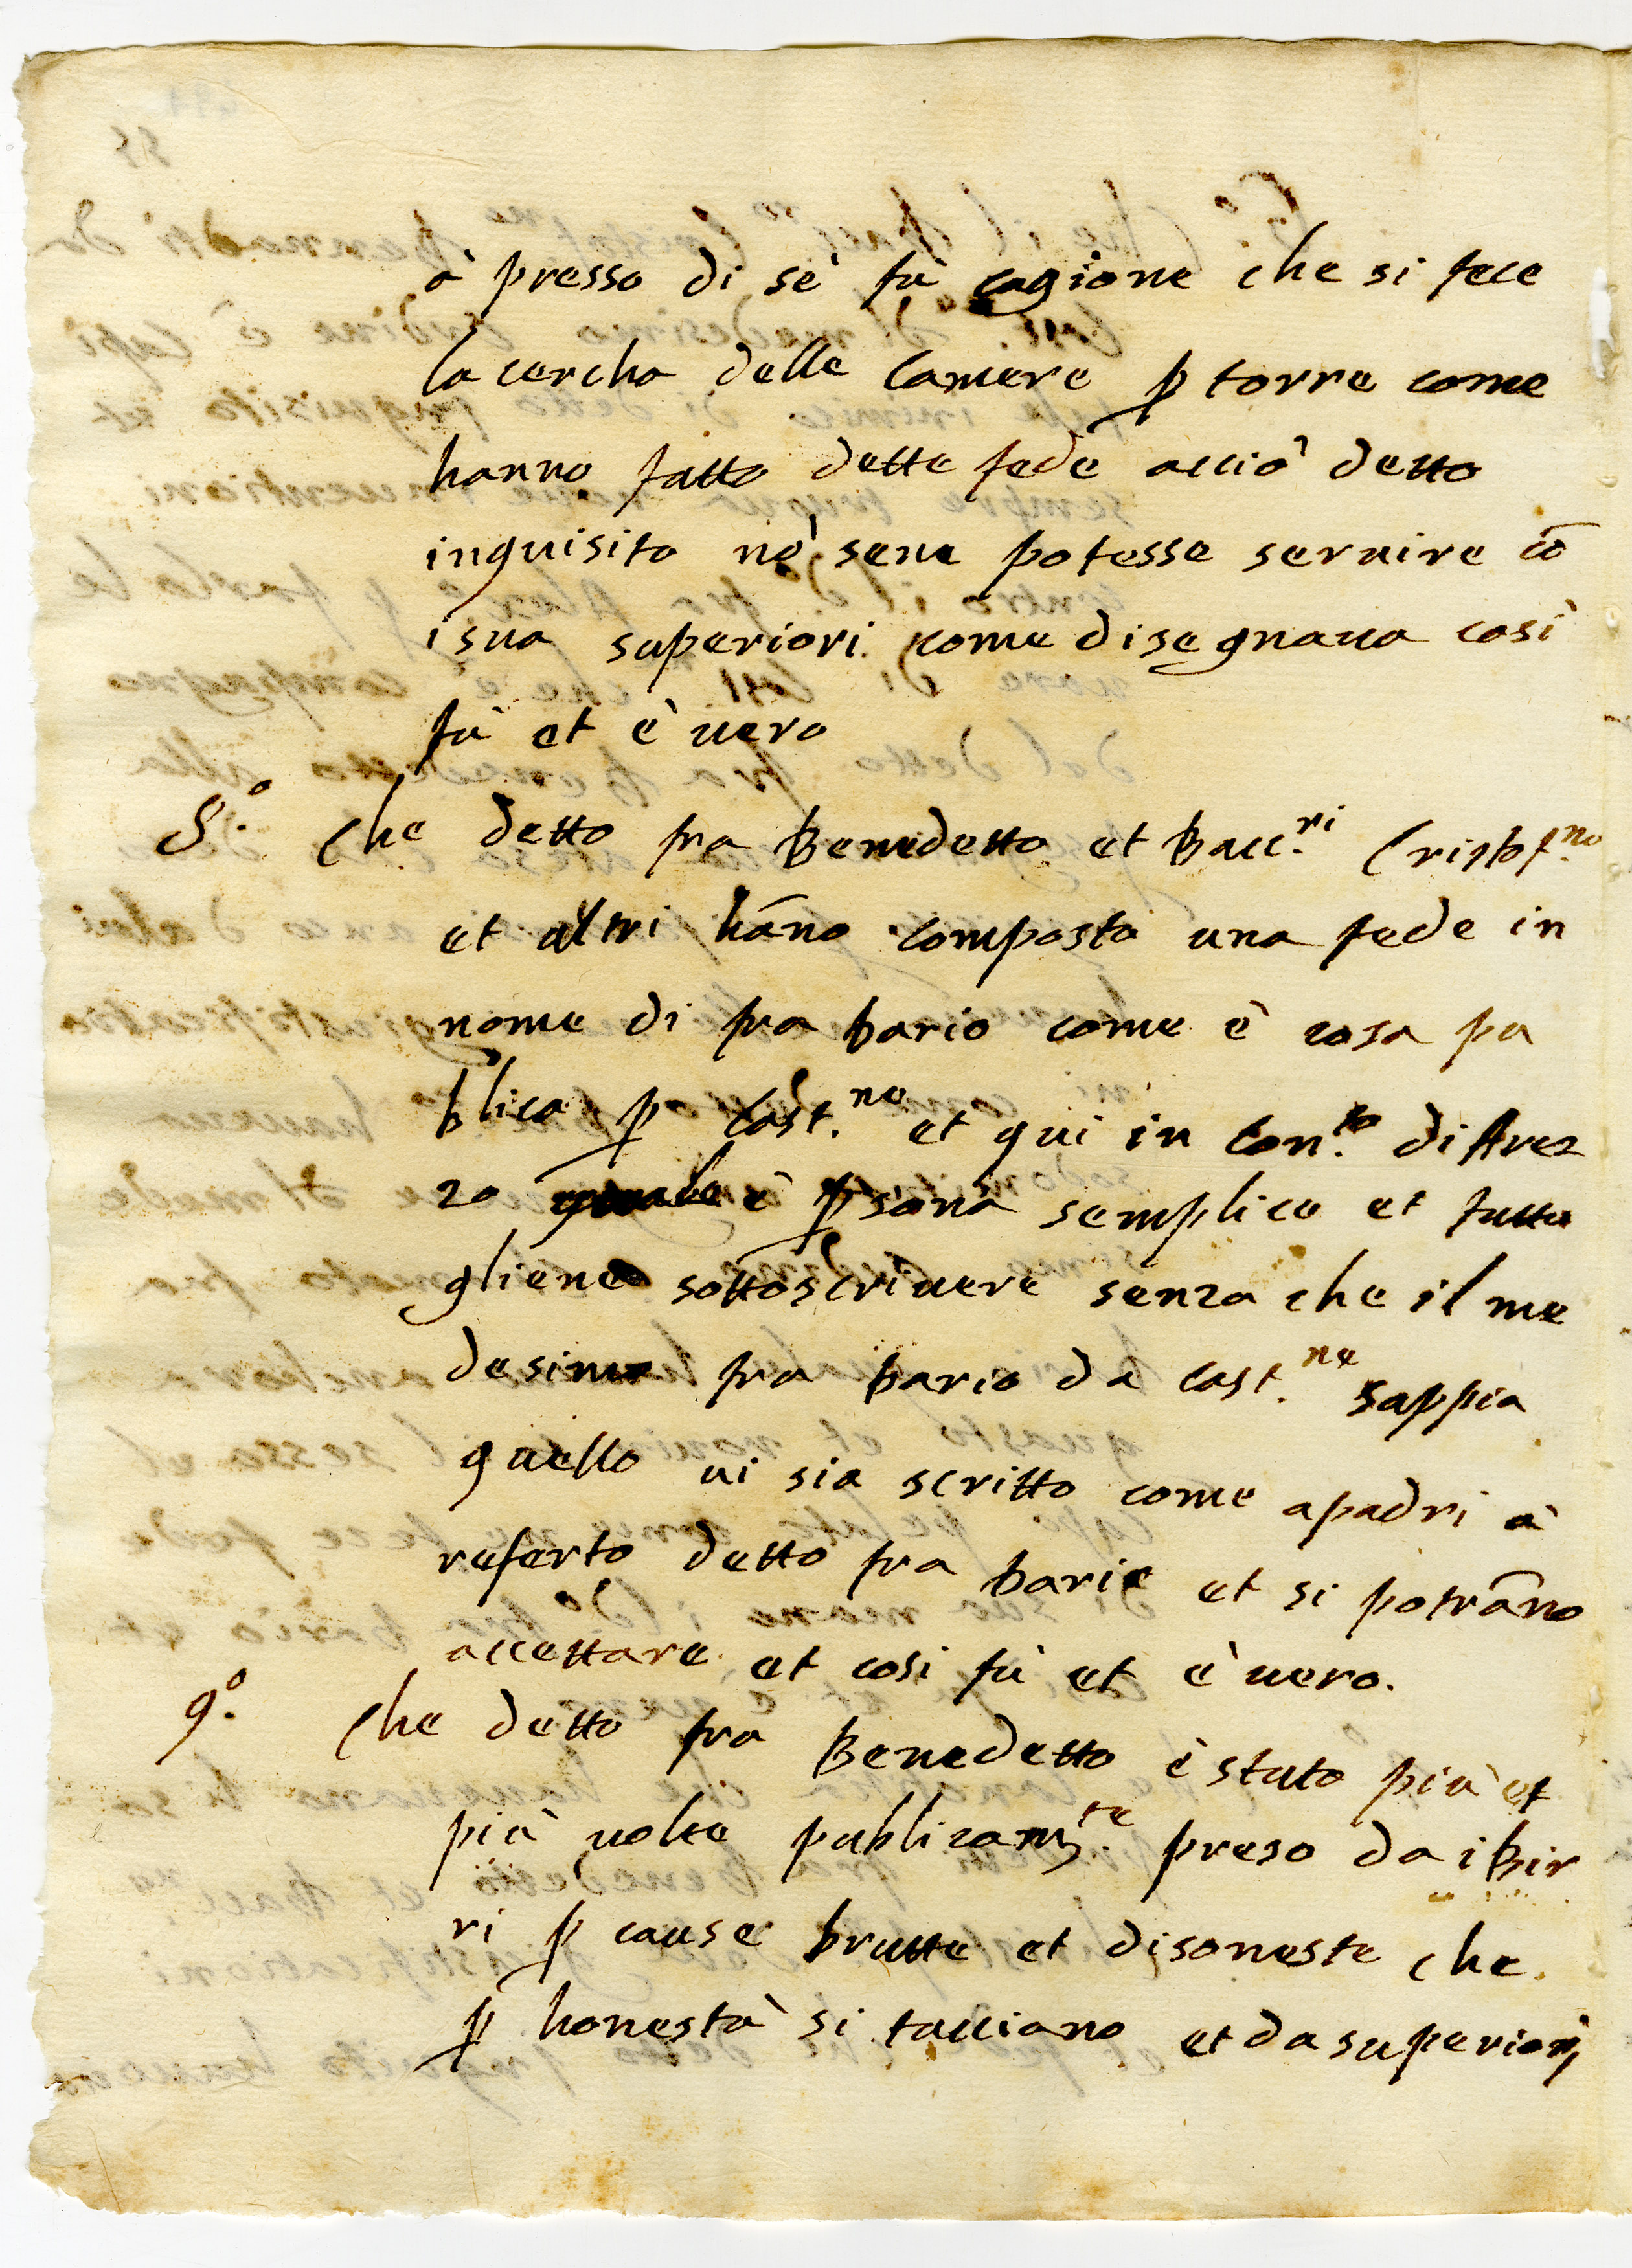 à presso di sè fù cagione che si fece
la cercha delle Camere ꝑ torre come
hanno fatto dette fede acciò detto
inquisito nō sene potesse seruire cō
i sua superiori come disegnaua così
fù et è uero
8.º Che detto fra Benedetto et Bacc.ri Cristof.no
et altri hāno composto una fede in
nome di fra bario come è cosa pu
blica ꝑ Cast.ne et qui in Con.to di Arez
zo quale è ꝑsona semplice et fatto
gliene sottoscriuere senza che il me
desimo fra bario da Cast.ne sappia
quello ui sia scritto come a padri à
referto detto fra bario et si potrāno
accettare et cosi fù et è uero.
9.º Che detto fra Benedetto è stato più et
più uolte publicam.te preso da i bir
ri ꝑ cause brutte et disoneste che
ꝑ honestà si tacciano et da superiori